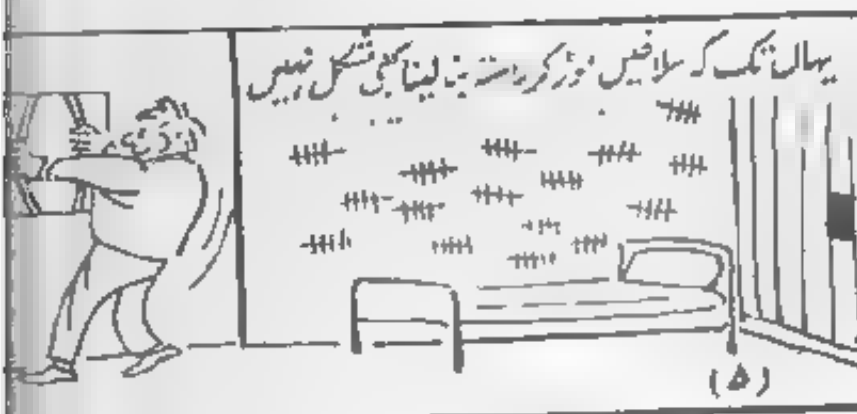 یہاں تک کہ سلاخیں توڑ کر راستہ بنا لینا بھی مشکل نہیں
(۵)